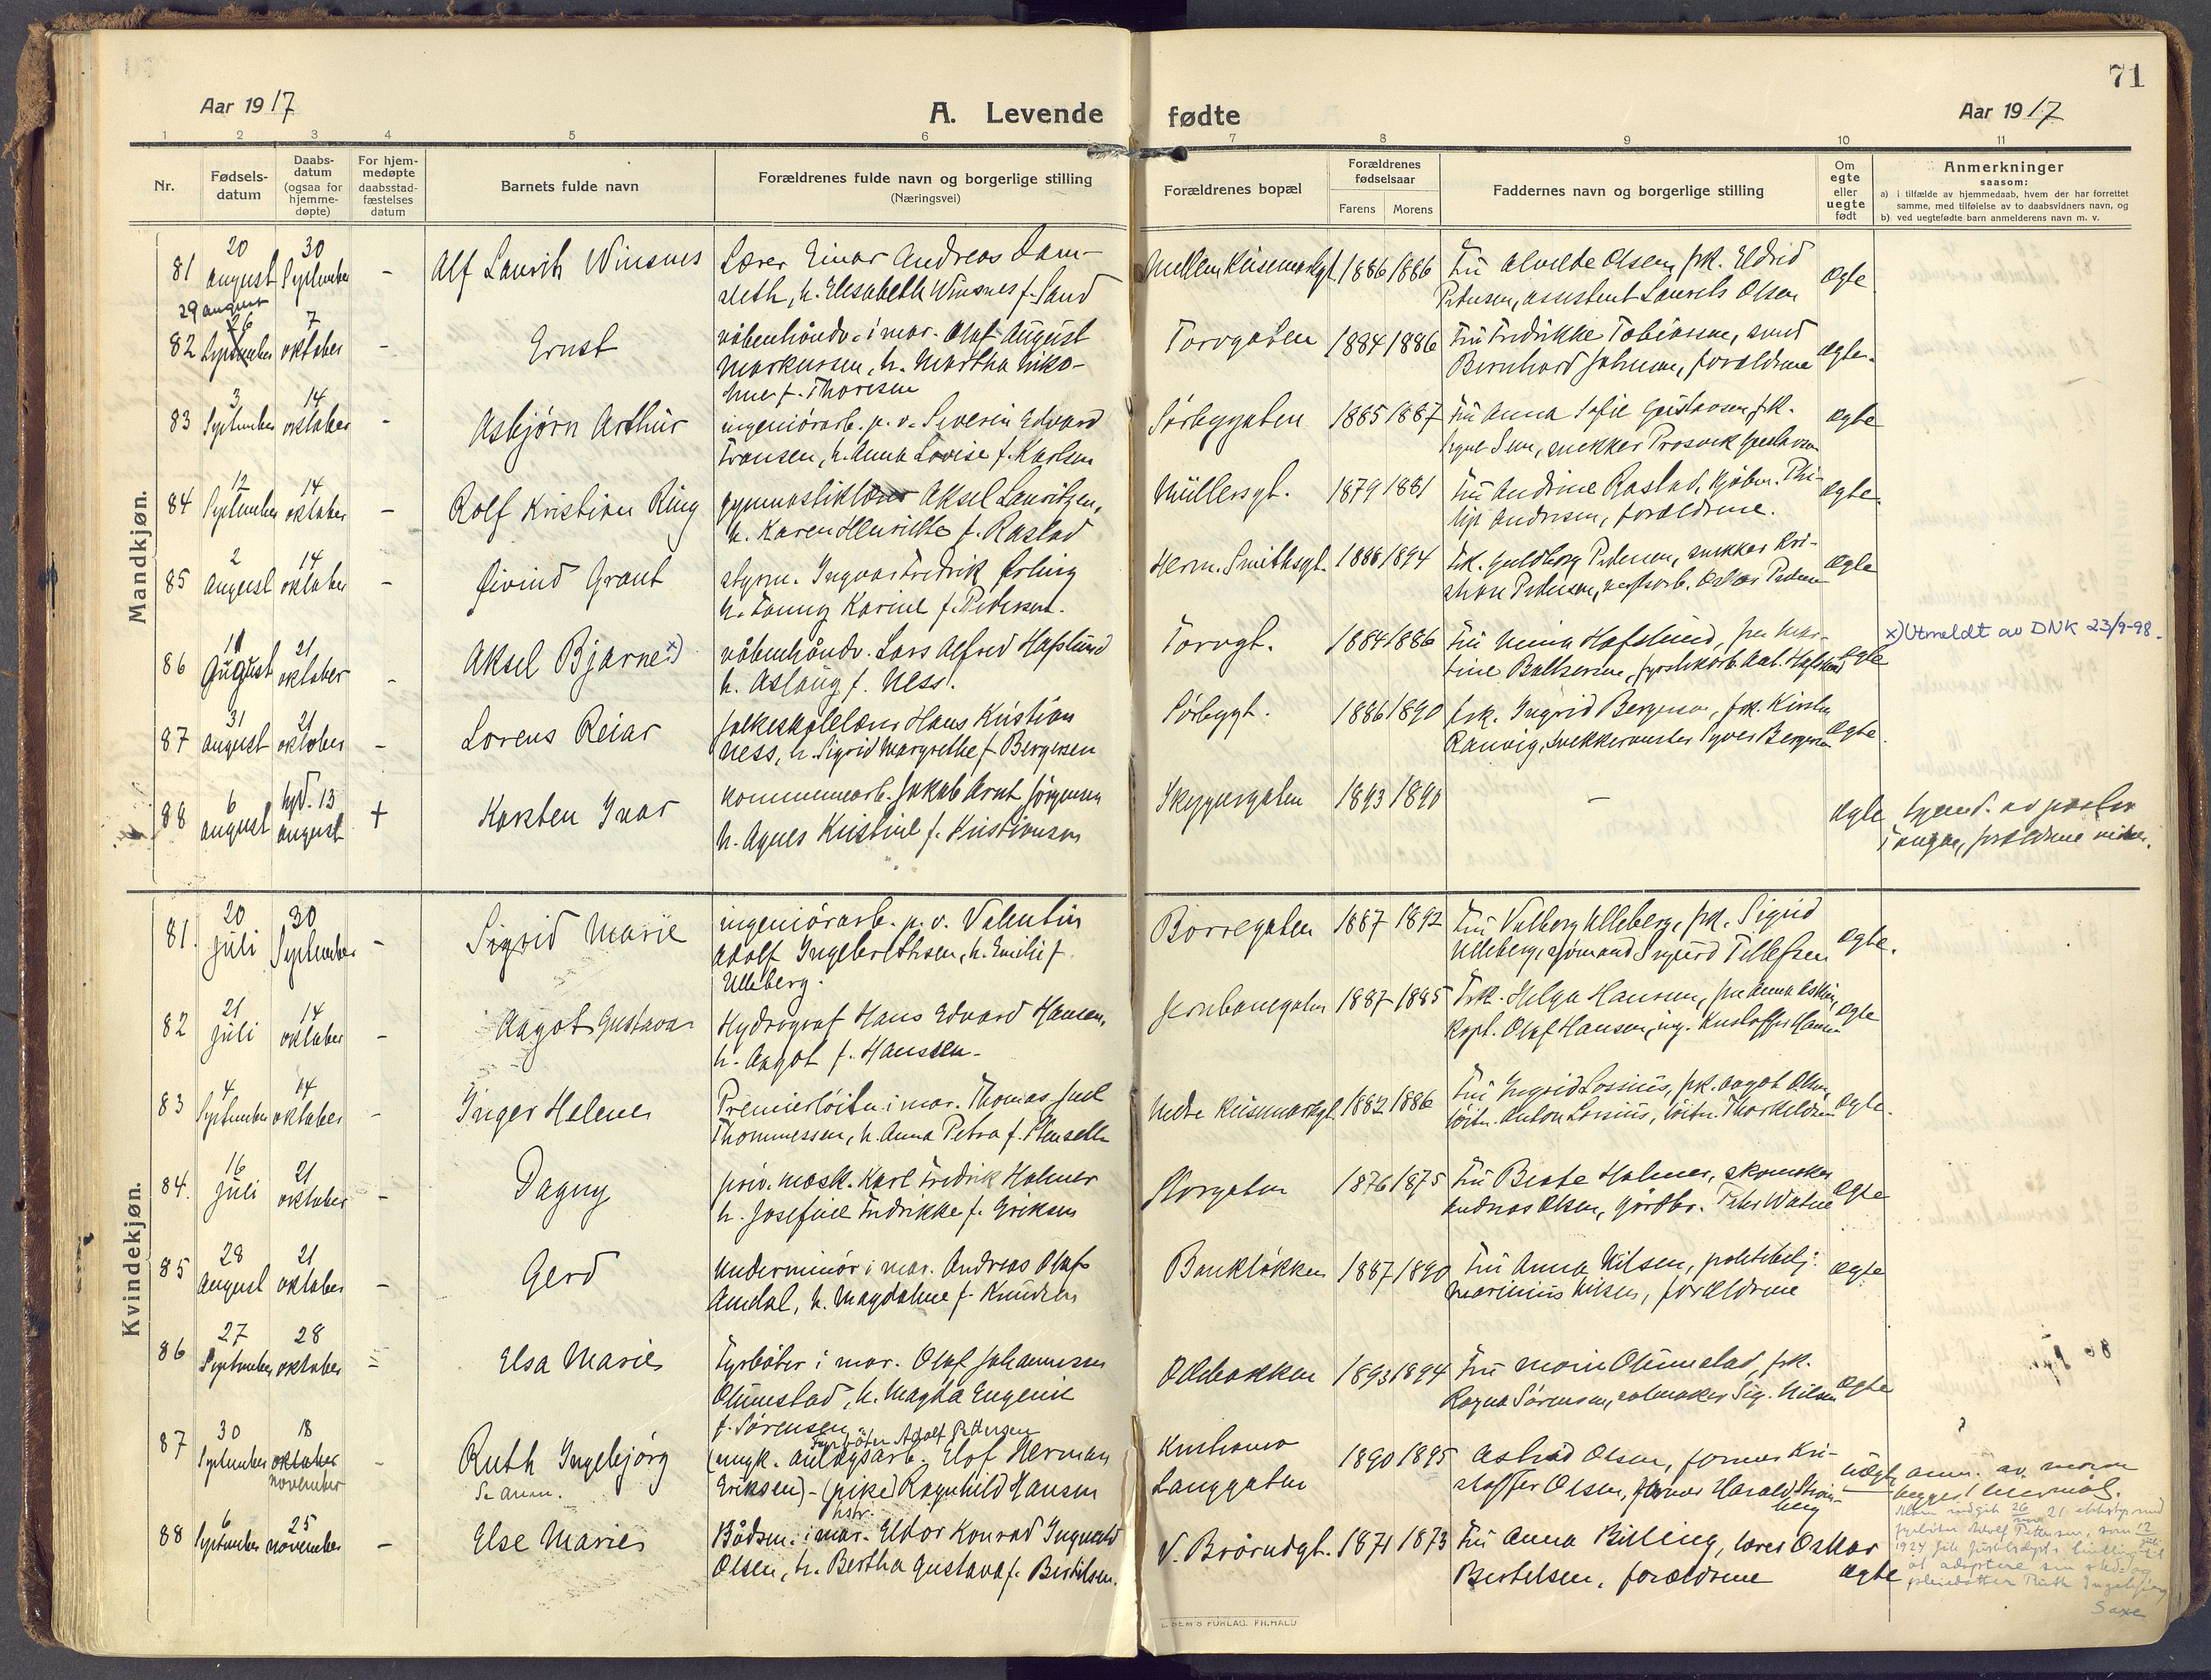 71
Aar 1917
A. Levende
fødte
Aar 1917
1 2 3 4 5 6 7 8 9 10 11
Nr.
Fødsels-
datum
Daabs-
datum
(ogsaa for
hjemme-
døpte)
For hjem-
medøpte
daabsstad-
fæstelses
datum
Barnets fulde navn
Forældrenes fulde navn og borgerlige stilling
(Næringsvei)
Forældrenes bopæl
Forældrenes
fødselsaar
Farens Morens
Faddernes navn og borgerlige stilling
Om
egte
eller
uegte
født
Anmerkninger
saasom:
a) i tilfælde av hjemmedaab, hvem der har forrettet
samme, med tilføielse av to daabsvidners navn, og
b) ved uegtefødte barn anmelderens navn m. v.
Mandkjøn.
81 20 august 30 September - Alf Laurits Winsnes
Lærer Einar Andreas Lam-
sleth, h. Elisabeth Winsnes f. Sand
1886 1886
Fru Alvilde Olsen, frk. Eldrid
Petersen, assistent Laurits Olsen
egte
29 august
82 26 September 7 oktober - Ernst
våbenhåndv. i mar. Olaf August
Markussen, h. Martha Niko-
line f. Thoresen
Torvgaten 1884 1886
Fru Fredrikke Tobiassen, smed
Bernhard Johnsen, forældrene
egte.
83 3 September 14 oktober - Asbjørn Arthur
ingeniörarb. p. v. Severin Edvard
Fransen, h. Anna Lovise f. Karlsen
Sörbyggaten 1885 1887
Fru Anna Sofie Gustavsen, frk.
snekker
egte
84 12 September 14 oktober - Rolf Kristian Ring
gymnastiklærer Aksel Lauritzen,
h. Karen Henriette f. Rastad
Müllersgt. 1879 1881
Fru Andrine Rastad, kjöbm. Phi-
lip Andresen, forældrene.
egte.
85 2 august 14 oktober - Øivind Grant
styrm. Ingvar Fredrik Örling
h. Fanny Karine f. Pedersen.
Herm. Smithsgt. 1888 1894
Frk. Guldborg Pedersen, snekker Kri-
stian Pedersen, verftsarb. Oskar Pedersen
egte
86 11 August 21 oktober - Aksel Bjarne x)
våbenhåndv. Lars Alfred Hafslund
h. Aslaug f. Ness.
Torvgt. 1884 1886
Fru Mina Hafslund, fru Mar-
tine Baltsersen, Hafslund
egte
x) Utmeldt av DNK 23/9-98.
87 31 august 21 oktober - Lorens Reiar
folkeskolelærer Hans Kristian
Ness, h. Sigrid Margrethe f. Bergersen
Sörbygt. 1886 1890
frk. Ingrid Bergersen, frk. Kirsten
Ranvig, snekkermester Bergersen
egte.
88 6 august hjd. 13 august + Karsten Ivar
kommunearb. Jakob Arnt Jörgensen
h. Agnes Kristine f. Kristiansen
Skyggesgaten 1893 1890
-
egte
hjemd. av pastor
forældrene vidner.
Kvindekjøn.
81. 20 juli 30 September - Sigrid Marie
ingeniörarb. p. v. Valentin
Adolf Ingebrethsen, h. Emilie f.
Ulleberg.
Borregaten 1887 1892
Fru Valborg Ulleberg, frk. Sigrid
Ulleberg, sjömand Sigurd Tellefsen
egte.
82 21 juli 14 oktober - Aagot Gustava
Hydrograf Hans Edvard Hansen,
h. Aagot f. Hanssen.
Jernbanegaten 1887 1885
Frk. Helga Hansen, fru Anna
kapt. Olaf Hansen, ing. Kristoffer Hansen
egte
83 4 September 14 oktober - Inger Helene
Premierlöitn. i mar. Thomas Juel
Thommessen, h. Anna Petra f.
1882 1886
Fru Ingrid Lossius, frk. Aagot Olsen,
löitn. Anton Lossius, löitn.
egte.
84. 16 juli 21 oktober - Dagny
priv. mask. Karl Fredrik Holmer
h. Josefine Fredrikke f. Eriksen
Storgaten 1876 1875
Fru Beate Holmer, skomaker
Andreas Olsen, gårdbr. Peter
egte
85 28 august 21 oktober - Gerd
Underminör i mar. Andreas Olaf
Amdal, h. Magdalene f. Knudsen
Bankløkken 1887 1890
Fru Anna Nilsen, politibetj.
Marinius Nilsen, forældrene
egte
86 27 September 28 oktober = Elsa Marie
Fyrböter i mar. Olaf Johannessen
Olumstad, h. Magda Eugenie
f. Sørensen
Oldbakken 1893 1894
Fru Marie Olumstad, frk.
Ragna Sörensen, Sig. Nilsen
egte
87 30 September 18 oktober november - Ruth Ingebjørg
Se anm.
Fyrböter Adolf Pettersen
(ungk. anlægsarb. Elof Herman
Eriksen) - (pike) Ragnhild Hansen
hstr.
Langgaten 1890 1895
Astrid Olsen, former Kri-
stoffer Olsen, former Harald Ström-
berg
uegte
?
anm. av moren
1924
at adoptere sin
Ruth Ingebjørg
Saxe
88 6 September 25 november - Else Marie
Bådsm. i mar. Eldor Konrad Ingvald
Olsen, h. Bertha Gustava f. Bertelsen.
V. Brårudgt. 1871 1873
Fru Anna Billing, lærer Oskar
Bertelsen, forældrene
egte
E. SEM'S FORLAG, FR.HALD